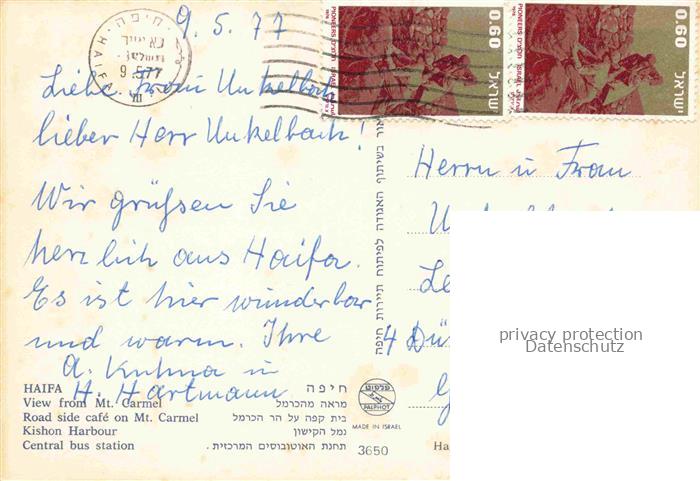 9.5.77
חיפה
HAIFA
9.5.77
0.60
ישראל
ISRAEL
PIONEERS
0.60
ישראל
ISRAEL
PIONEERS
Liebe Frau Unkelbach
lieber Herr Unkelbach!
Wir grüßen Sie
herzlich aus Haifa.
Es ist hier wunderbar
und warm. Ihre
A. Kuhna u
H. Hartmann
Herrn u Frau
4 Dü
privacy protection
Datenschutz
HAIFA
View from Mt. Carmel
Road side café on Mt. Carmel
Kishon Harbour
Central bus station
חיפה
מראה מהכרמל
בית קפה על הר הכרמל
נמל הקישון
תחנת האוטובוסים המרכזית.
פלפוט
PALPHOT
MADE IN ISRAEL
3650
Ha